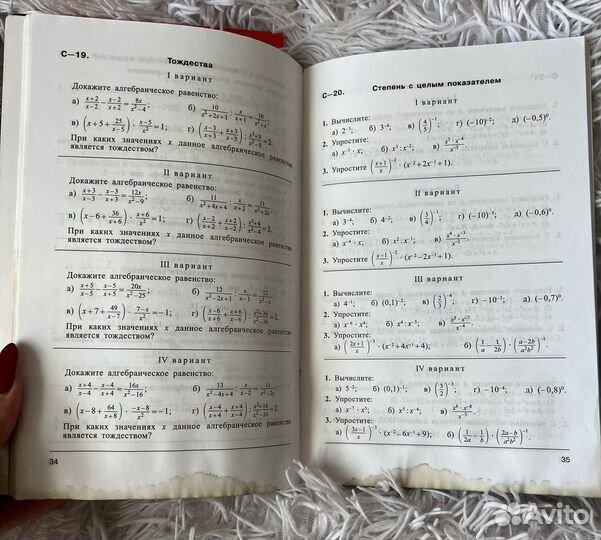 С—19. Тождества
I вариант
Докажите алгебраическое равенство:
а) (x+2)/(x−2) − (x−2)/(x+2) = 8x/(x²−4); б) 10/(x²+2x+1) :
в) (x+5+25/(x−5)) · = 1; г)
При каких значениях x данное алгебраическое равенство
является тождеством?
II вариант
Докажите алгебраическое равенство:
а) (x+3)/(x−3) − (x−3)/(x+3) = 12x/(x²−9); б) 11/(x²+4x+4) :
в) (x−6+36/(x+6)) · (x+6)/x² = 1; г)
При каких значениях x данное алгебраическое равенство
является тождеством?
III вариант
Докажите алгебраическое равенство:
а) (x+5)/(x−5) − (x−5)/(x+5) = 20x/(x²−25); б) 12/(x²−2x+1) :
в) (x+7+49/(x−7)) · (7−x)/x² = −1; г)
При каких значениях x данное алгебраическое равенство
является тождеством?
IV вариант
Докажите алгебраическое равенство:
а) (x+4)/(x−4) − (x−4)/(x+4) = 16x/(x²−16); б) 13/(x²−4x+4) :
в) (x−8+64/(x+8)) · = −1; г)
При каких значениях x данное алгебраическое равенство
является тождеством?
34
С—20. Степень с целым показателем
I вариант
1. Вычислите:
а) 2⁻³; б) 3⁻⁴; в) (4/5)⁻¹; г) (−10)⁻²; д) (−0,5)⁰.
2. Упростите:
а) x⁻³ · x; б) x² : x⁻³; в)
3. Упростите ((x+1)/x)⁻² · (x⁻²+2x⁻¹+1).
II вариант
1. Вычислите:
а) 3⁻⁴; б) 4⁻²; в) (3/4)⁻¹; г) (−10)⁻³; д) (−0,6)⁰.
2. Упростите:
а) x⁻⁴ · x; б) x² : x⁻¹; в)
3. Упростите ((x−1)/x)⁻² · (x⁻²−2x⁻¹+1).
III вариант
1. Вычислите:
а) 4⁻¹; б) (0,1)⁻²; в) (2/3)⁻⁴; г) −10⁻³; д) (−0,7)⁰.
2. Упростите:
а) x⁻⁶ · x⁴; б) x⁴ : x⁻³; в)
3. Упростите:
а) ((2x+1)/x)⁻³ · (x⁻²+4x⁻¹+4); б) (1/a − 1/(2b)) · ((a−2b)/(a²b²))⁻¹.
IV вариант
1. Вычислите:
а) 5⁻¹; б) (0,1)⁻³; в) (5/2)⁻³; г) −10⁻⁴; д) (−0,8)⁰.
2. Упростите:
а) x⁻⁷ · x⁵; б) x³ : x⁻⁴; в)
3. Упростите:
а) ((3x−1)/x)⁻³ · (x⁻²−6x⁻¹+9); б) (1/(2a) − 1/b) · ((2a−b)/(a²b²))⁻¹.
35
Avito